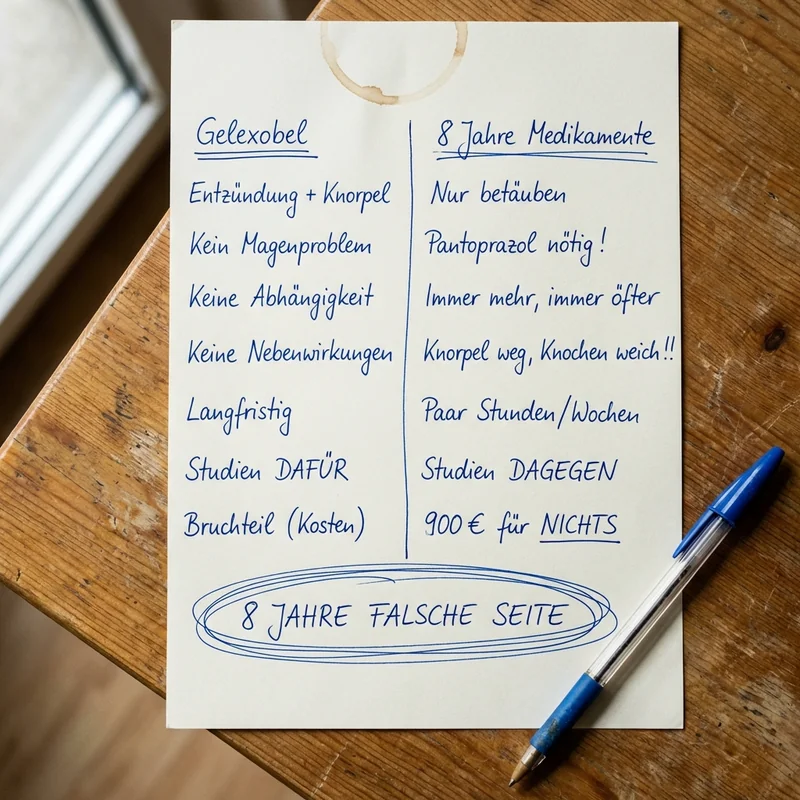 Gelexobel
Entzündung + Knorpel
Kein Magenproblem
Keine Abhängigkeit
Keine Nebenwirkungen
Langfristig
Studien DAFÜR
Bruchteil (Kosten)
8 Jahre Medikamente
Nur betäuben
Pantoprazol nötig!
Immer mehr, immer öfter
Knorpel weg, Knochen weich!!
Paar Stunden/Wochen
Studien DAGEGEN
900 € für NICHTS
8 JAHRE FALSCHE SEITE